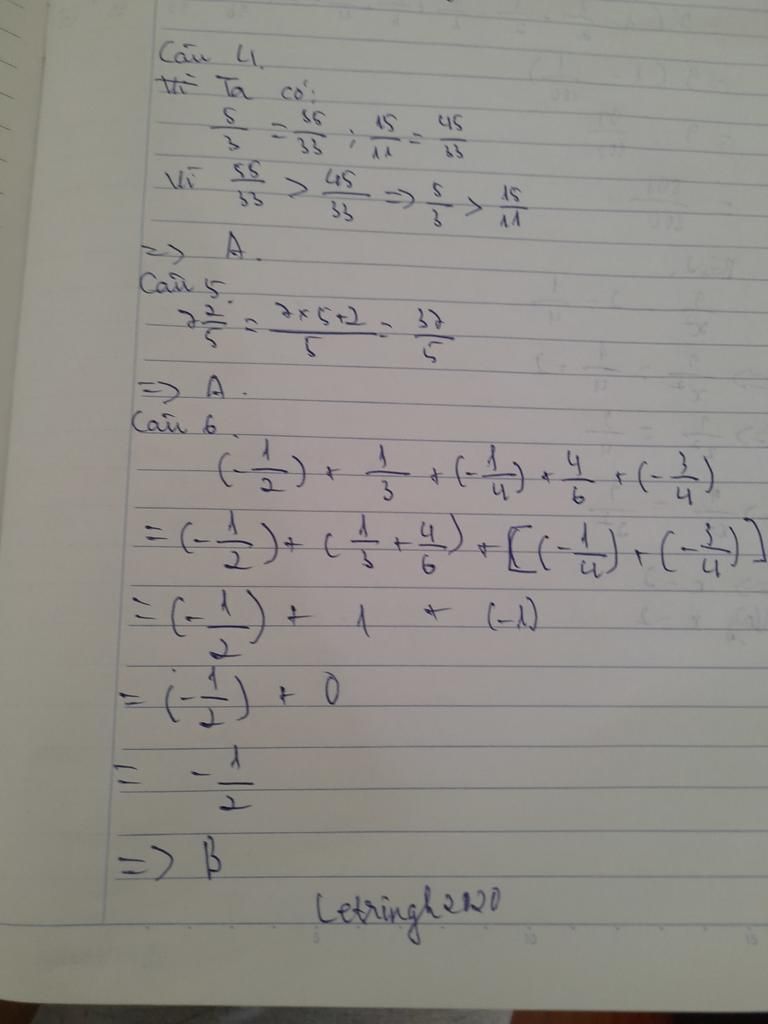 Câu 4.
Vì Ta có:
5/3 = 55/33 ; 15/11 = 45/33
Vì 55/33 > 45/33 => 5/3 > 15/11
=> A.
Câu 5.
7 2/5 = 7×5+2/5 = 37/5
=> A.
Câu 6.
(-1/2) + 1/3 + (-1/4) + 4/6 + (-3/4)
= (-1/2) + (1/3 + 4/6) + [(-1/4) + (-3/4)]
= (-1/2) + 1 + (-1)
= (-1/2) + 0
= -1/2
=> B